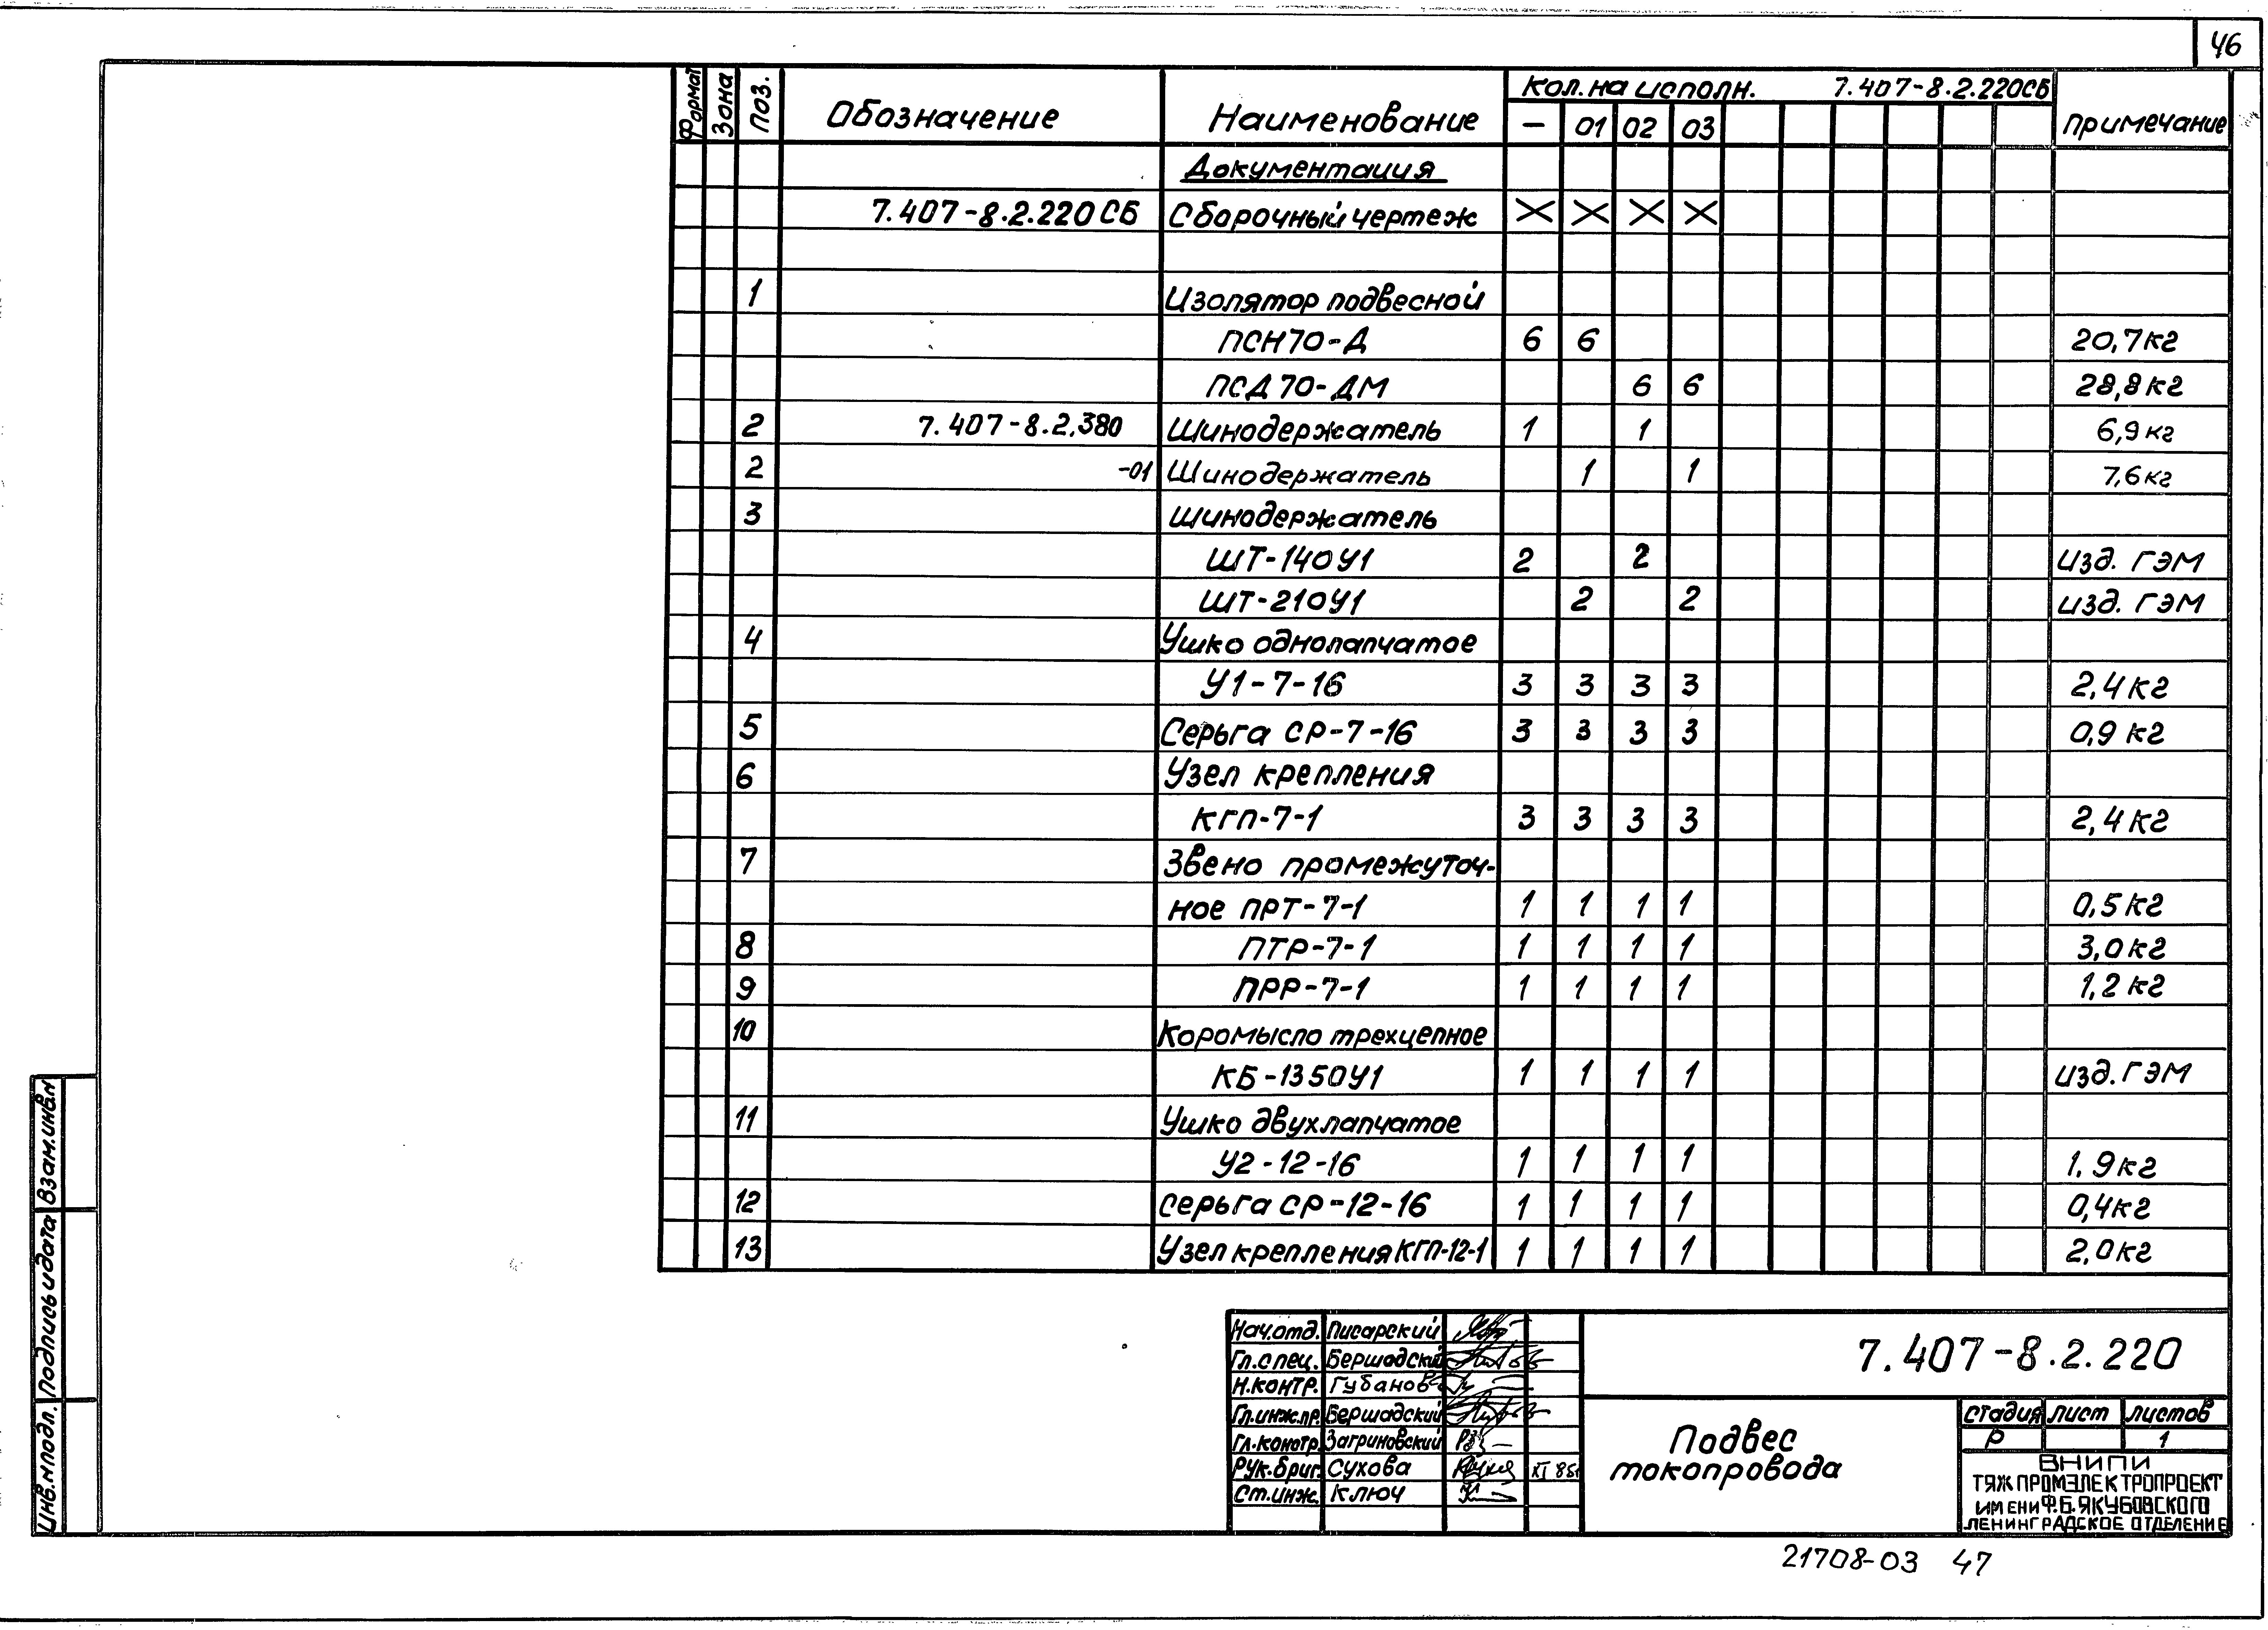 46
Формат Зона Поз. Обозначение Наименование Кол. на исполн. 7.407-8.2.220СБ Примечание
— 01 02 03
Документация
7.407-8.2.220 СБ Сборочный чертеж X X X X
1 Изолятор подвесной
ПСН70-Д 6 6 20,7кг
ПСД70-ДМ 6 6 28,8кг
2 7.407-8.2.380 Шинодержатель 1 1 6,9кг
2 -01 Шинодержатель 1 1 7,6кг
3 Шинодержатель
ШТ-140У1 2 2 изд. ГЭМ
ШТ-210У1 2 2 изд. ГЭМ
4 Ушко однолапчатое
У1-7-16 3 3 3 3 2,4кг
5 Серьга СР-7-16 3 3 3 3 0,9кг
6 Узел крепления
КГП-7-1 3 3 3 3 2,4кг
7 Звено промежуточ-
ное ПРТ-7-1 1 1 1 1 0,5кг
8 ПТР-7-1 1 1 1 1 3,0кг
9 ПРР-7-1 1 1 1 1 1,2кг
10 Коромысло трехцепное
КБ-1350У1 1 1 1 1 изд. ГЭМ
11 Ушко двухлапчатое
У2-12-16 1 1 1 1 1,9кг
12 Серьга СР-12-16 1 1 1 1 0,4кг
13 Узел крепления КГП-12-1 1 1 1 1 2,0кг
Взам.инв.N
Подпись и дата
Инв.N подл.
Нач.отд. Писарский
Гл.спец. Бершадский
Н.контр. Губанов
Гл.инж.пр. Бершадский
Гл.констр. Загриновский
Рук.бриг. Сухова XI 85г
Ст.инж. Ключ
7.407-8.2.220
Подвес
токопровода
Стадия Лист Листов
Р 1
ВНИПИ
ТЯЖПРОМЭЛЕКТРОПРОЕКТ
ИМЕНИ Ф.Б.ЯКУБОВСКОГО
ЛЕНИНГРАДСКОЕ ОТДЕЛЕНИЕ
21708-03 47